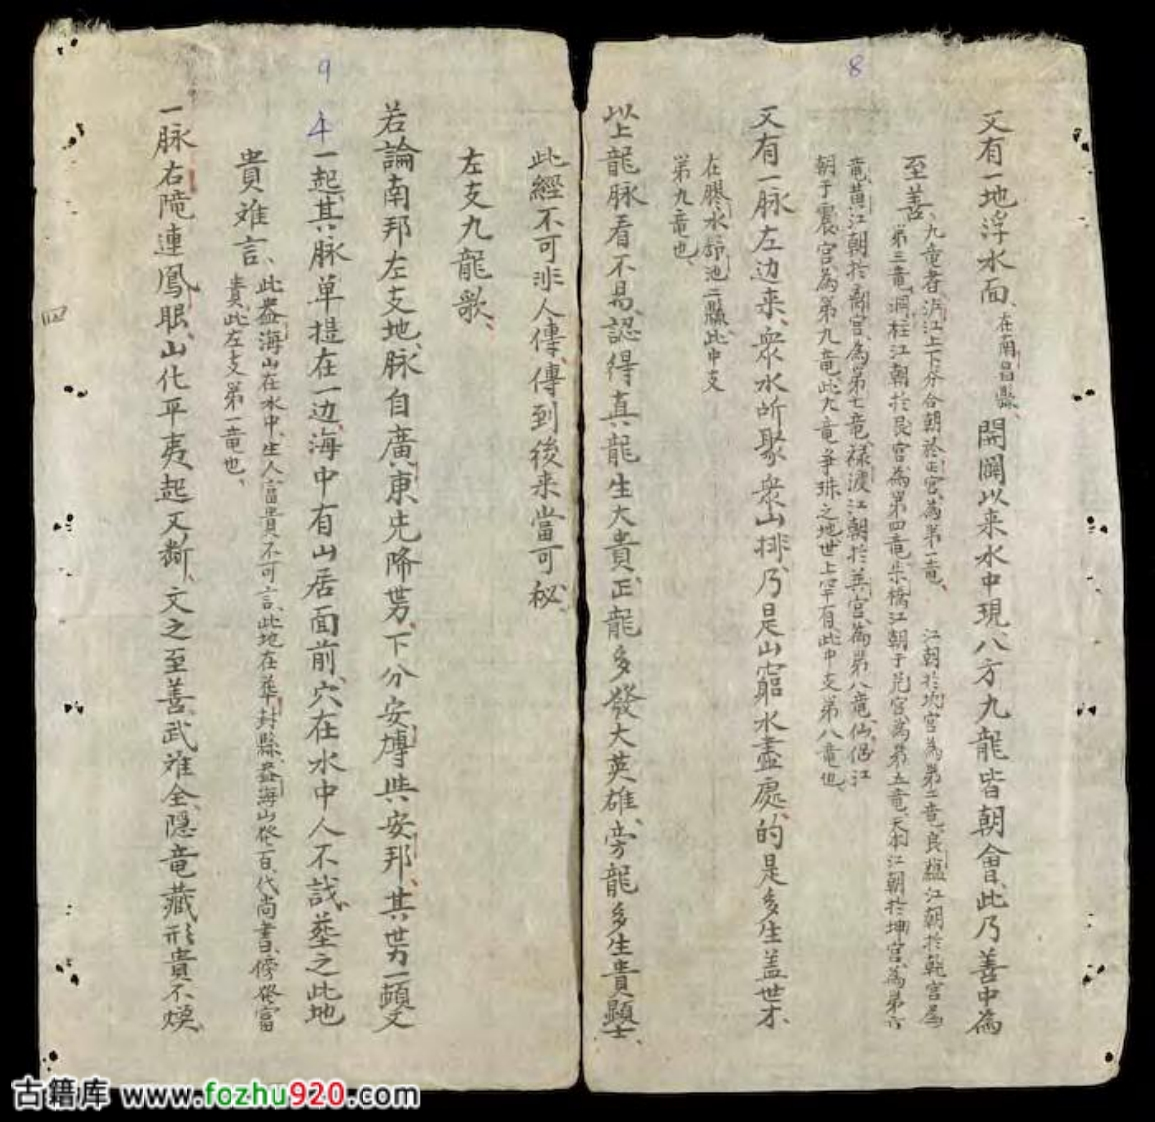 8
又有一地浮水面、在南昌縣、開闢以来水中現八方九龍皆朝會此乃善中為
至善、九竜者、泸江上下分合朝於丙宮、為第一竜、江朝於坎宮為第二竜、良蘊江朝於乾宮為
第三竜、洞柱江朝於艮宮為第四竜、朱橋江朝于兌宮為第五竜、天江朝於坤宮、為第六
竜、黄江朝於离宮、為第七竜、禄渡江朝於巽宮、為第八竜、仙侶江
朝于震宮為第九竜、此九竜争珠之地世上罕有此中支第八竜也、
又有一脉左边来、衆水所聚衆山排、乃是山窮水盡處、的是多生盖世才、
在膠水舒池二縣、此中支
第九竜也、
以上龍脉看不易、認得真龍生大貴、正龍多發大英雄、旁龍多生貴顯士、
此經不可非人傳、傳到後来當可秘、
9
左支九龍歌、
若論南邦左支地、脉自廣東先降势、下分安博与安邦、其势一頓又
一起、其脉单提在一边、海中有山居面前、穴在水中人不哉、塟之此地
貴难言、此盎海山在水中、生人富貴不可言、此地在華封縣、盎海山發百代尚書、傍發富
貴、此左支第一竜也、
一脉右障連鳳眼、山化平夷起又断、文之至善、武难全、隠竜藏形貴不煥、
四
古籍库 www.fozhu920.com